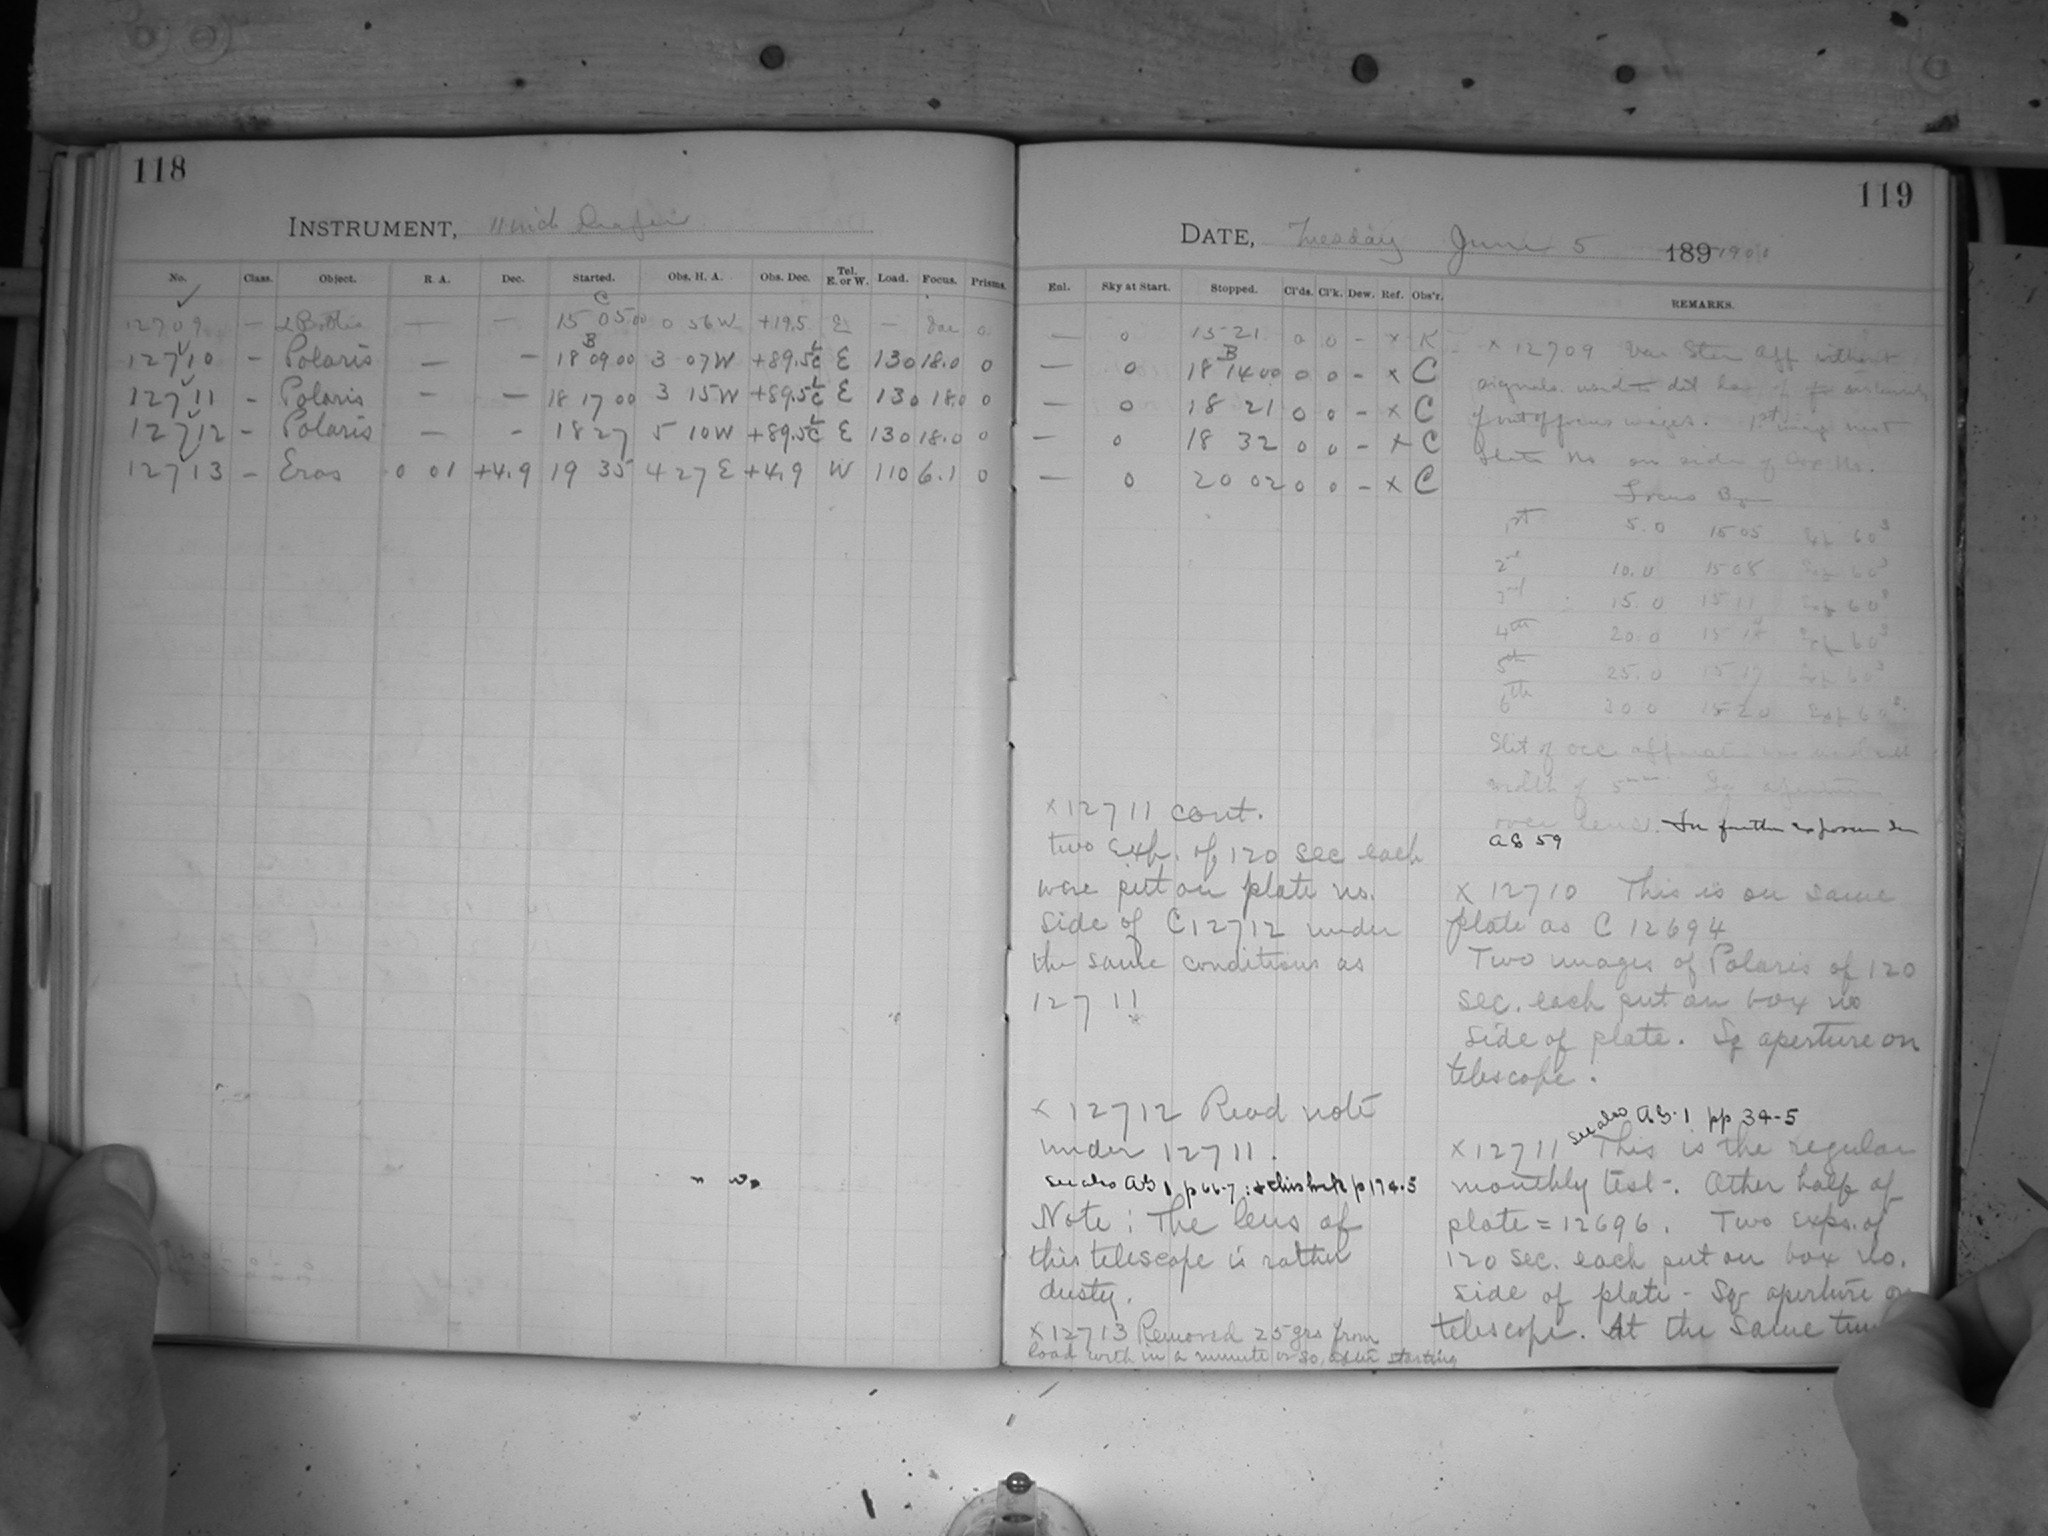 118
INSTRUMENT, 11 inch Draper
No. Class. Object. R. A. Dec. Started. Obs. H. A. Obs. Dec. Tel. E. or W. Load. Focus. Prisms.
C
12709 — — — 15 05 00 0 56 W +19.5 E — 0
B
12710 - Polaris — — 18 09 00 3 07 W +89.5 E 130 18.0 0
12711 - Polaris - — 18 17 00 3 15 W +89.5 E 130 18.0 0
12712 - Polaris — - 18 27 5 10 W +89.5 E 130 18.0 0
12713 - Eros 0 01 +4.9 19 35 4 27 E +4.9 W 110 6.1 0
119
DATE, Tuesday June 5 189
Enl. Sky at Start. Stopped. Cl'ds. Cl'k. Dew. Ref. Obs'r. REMARKS.
— 0 15 21 0 0 - x K
B
— 0 18 14 00 0 0 - x C
— 0 18 21 0 0 - x C
— 0 18 32 0 0 - x C
— 0 20 02 0 0 - x C
x 12709 without
of out of focus images. 1st image next
plate no on side of box no.
Focus
1st 5.0 15 05 Exp 60s
2nd 10.0 15 08 Exp 60s
3rd 15.0 15 11 Exp 60s
4th 20.0 15 14 Exp 60s
5th 25.0 15 17 Exp 60s
6th 30.0 15 20 Exp 60s
Slit of
width of 5mm Sq aperture
over lens. For further exposure see
AS 59
x 12710 This is on same
plate as C 12694
Two images of Polaris of 120
sec. each put on box no
side of plate. Sq aperture on
telescope.
See also AS 1 pp 34-5
x 12711 This is the regular
monthly test-. Other half of
plate = 12696. Two exps. of
120 sec. each put on box no.
side of plate - Sq aperture on
telescope. At the same time
x 12711 cont.
two exp. of 120 sec each
were put on plate no.
side of C 12712 under
the same conditions as
12711
x 12712 Read note
under 12711.
See also AS 1 p 66-7; & this book p 174-5
Note: The lens of
this telescope is rather
dusty.
x 12713 Removed 25 grs from
load with in a minute or so, after starting